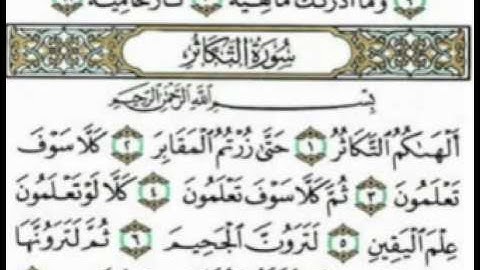 وَمَآ أَدْرَىٰكَ مَا هِيَهْ ١٠ نَارٌ حَامِيَةٌۢ ١١
سُورَةُ التَّكَاثُرِ
بِسْمِ اللَّهِ الرَّحْمَٰنِ الرَّحِيمِ
أَلْهَىٰكُمُ ٱلتَّكَاثُرُ ١ حَتَّىٰ زُرْتُمُ ٱلْمَقَابِرَ ٢ كَلَّا سَوْفَ
تَعْلَمُونَ ٣ ثُمَّ كَلَّا سَوْفَ تَعْلَمُونَ ٤ كَلَّا لَوْ تَعْلَمُونَ
عِلْمَ ٱلْيَقِينِ ٥ لَتَرَوُنَّ ٱلْجَحِيمَ ٦ ثُمَّ لَتَرَوُنَّهَا